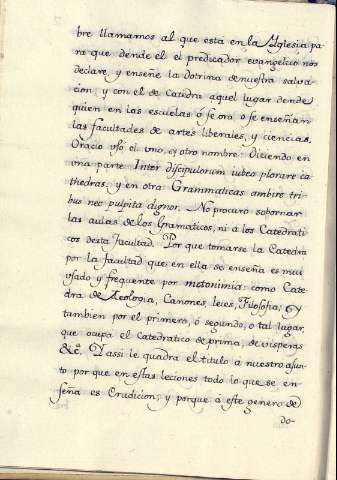 bre llamamos al que està en la Yglesia pa
ra que dende el el predicador evangelico nos
declare, y enseñe la dotrina de nuestra salva
cion, y con el de Catedra aquel lugar dende
quien en las escuelas ó se ora, o se enseñan
las facultades de artes liberales, y ciencias.
Oracio vso el vno, ey otro nombre. Diciendo en
vna parte Inter discipulorum iubeo plorare ca
thedras, y en otra Grammaticas ambire tri
bus nec pulpita dignor. No procuro sobornar
las aulas de los Gramaticos, ni á los Catedrati
cos desta facultad. Por que tomarse la Catedra
por la facultad que en ella se enseña es mui
vsado y frequente por metonimia: como Cate
dra de Teologia, Canones, leies, Filosofia, Y
tambien por el primero, ó segundo, o tal lugar
que ocupa el Catedratico de prima, de visperas
&cª. Y assi le quadra el titulo à nuestro asun
to por que en estas leciones todo lo que se en
seña es Erudicion; y porque à este genero de
do-